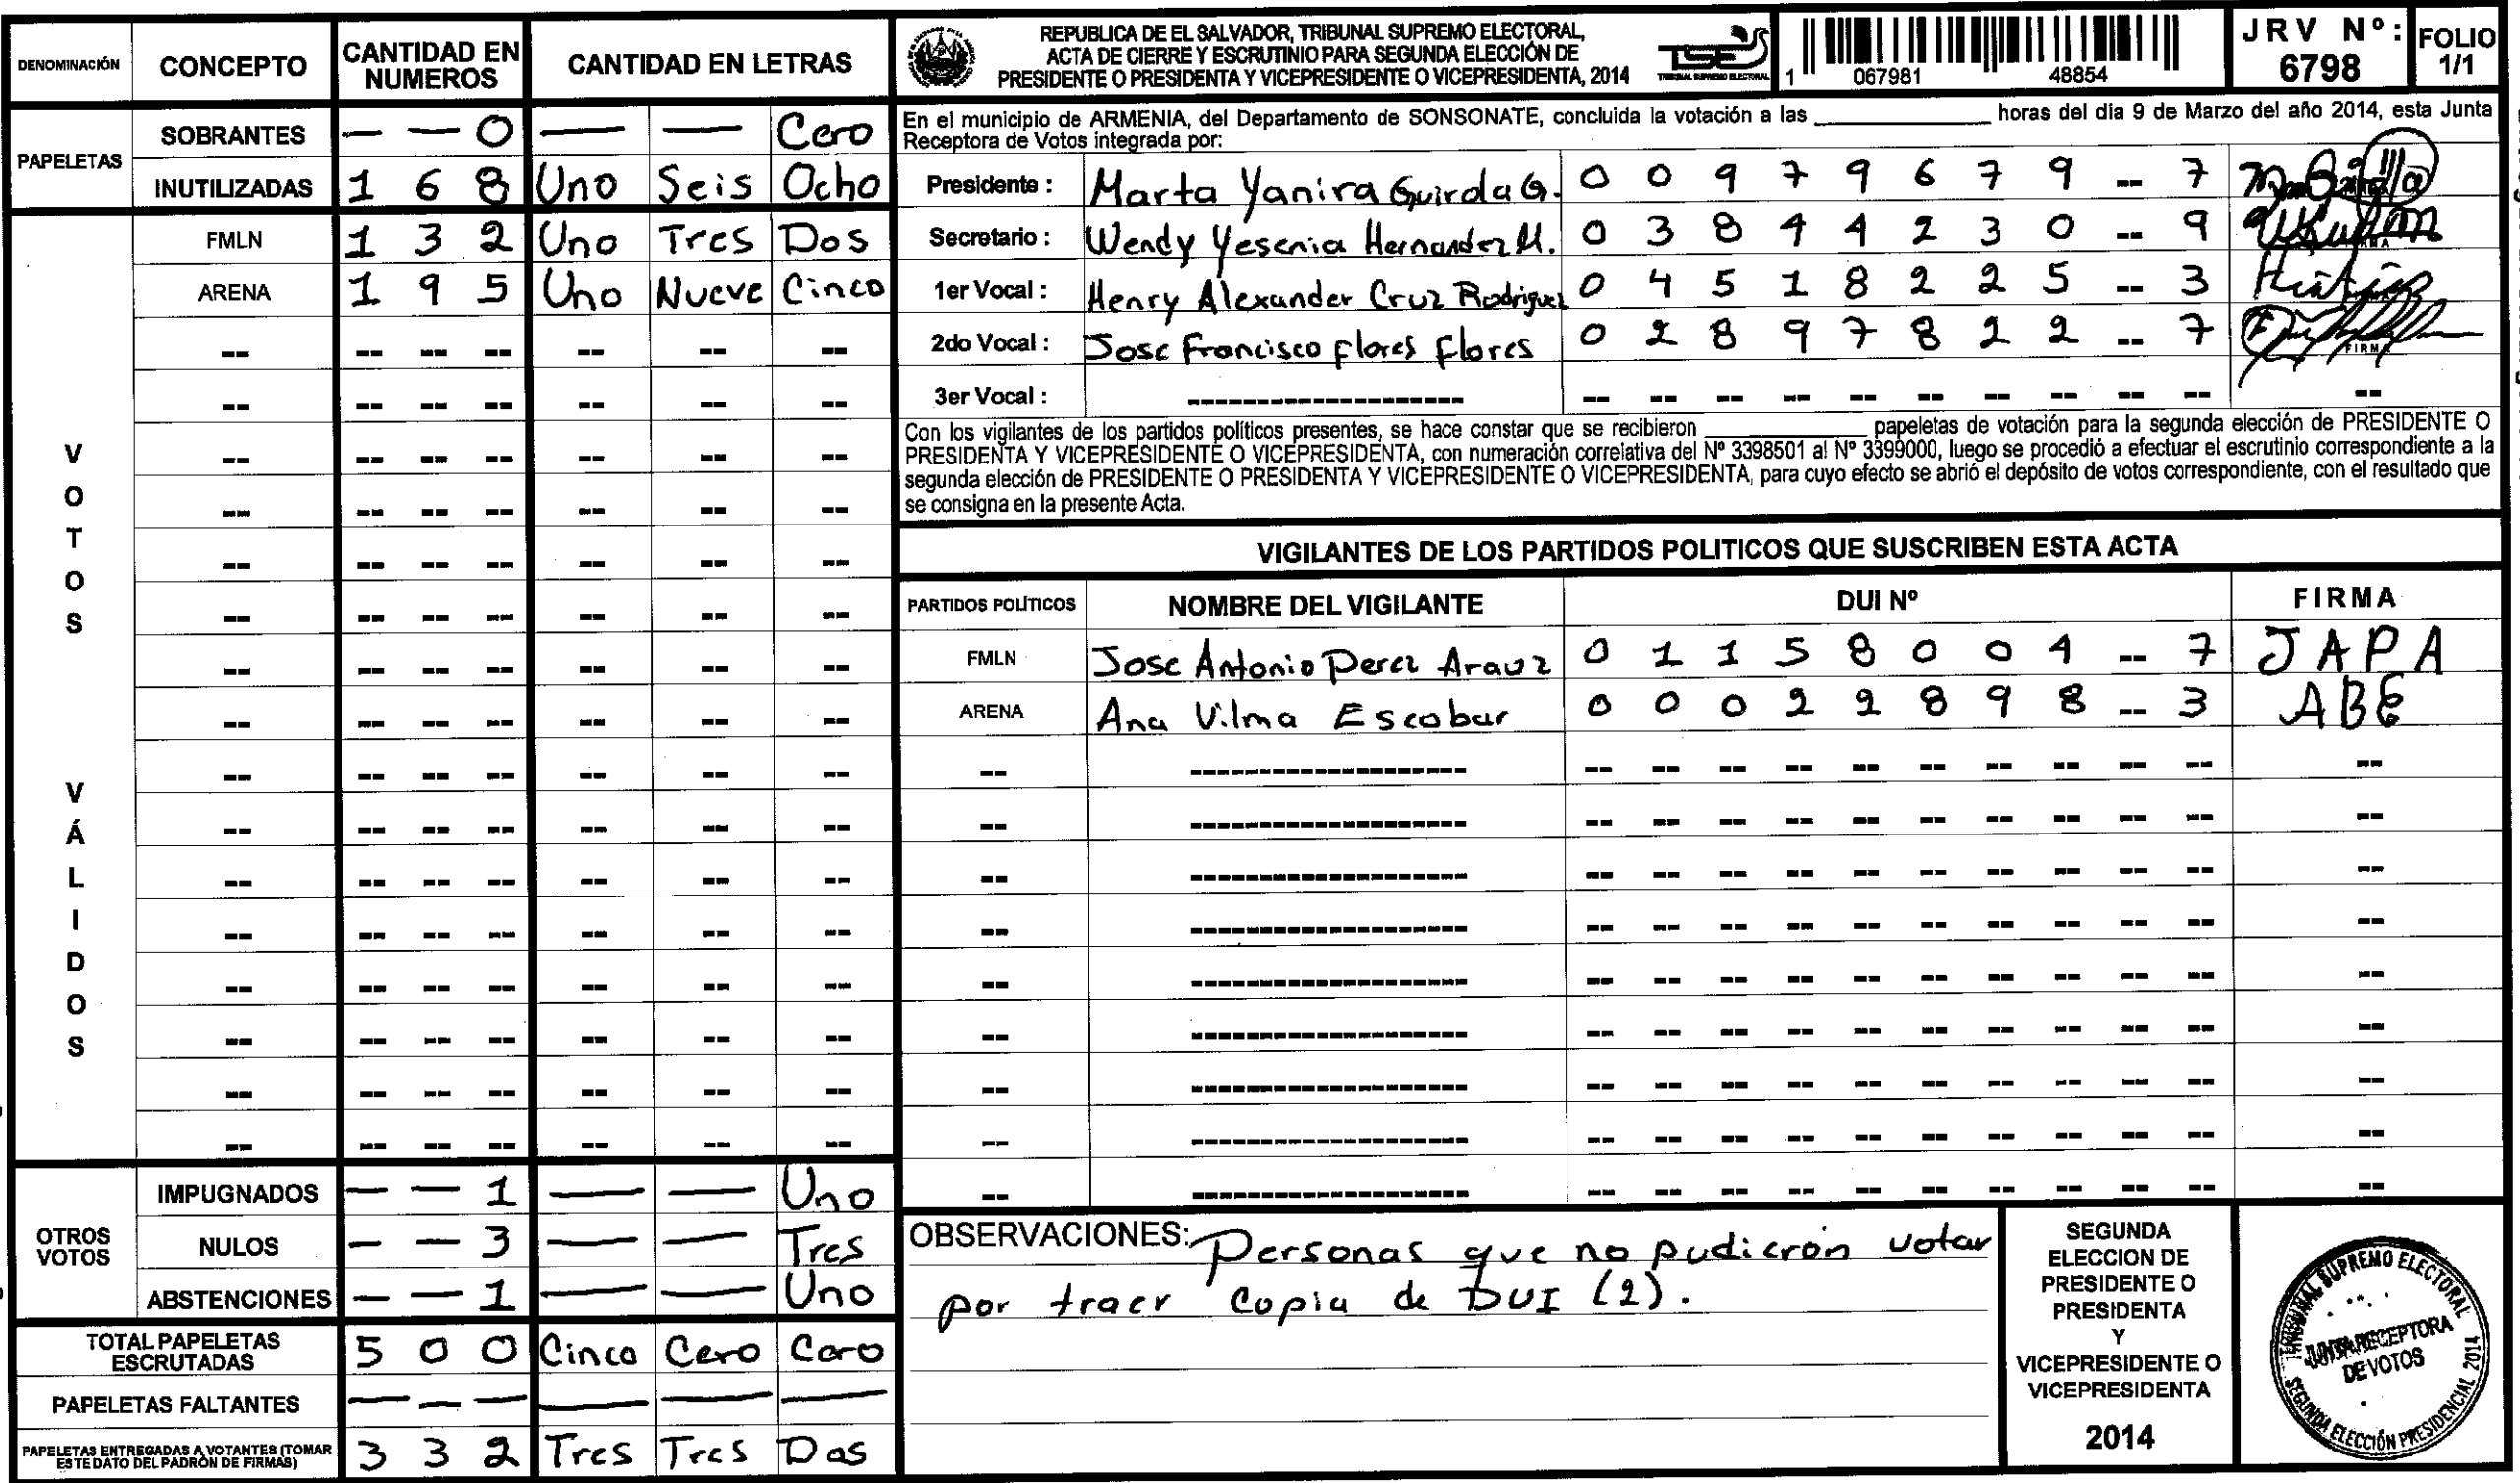 DENOMINACIÓN CONCEPTO CANTIDAD EN NUMEROS CANTIDAD EN LETRAS
PAPELETAS
SOBRANTES — — 0 — — Cero
INUTILIZADAS 1 6 8 Uno Seis Ocho
VOTOS VÁLIDOS
FMLN 1 3 2 Uno Tres Dos
ARENA 1 9 5 Uno Nueve Cinco
OTROS VOTOS
IMPUGNADOS — — 1 — — Uno
NULOS — — 3 — — Tres
ABSTENCIONES — — 1 — — Uno
TOTAL PAPELETAS ESCRUTADAS 5 0 0 Cinco Cero Cero
PAPELETAS FALTANTES — — — — — —
PAPELETAS ENTREGADAS A VOTANTES (TOMAR ESTE DATO DEL PADRÓN DE FIRMAS) 3 3 2 Tres Tres Dos
REPUBLICA DE EL SALVADOR, TRIBUNAL SUPREMO ELECTORAL,
ACTA DE CIERRE Y ESCRUTINIO PARA SEGUNDA ELECCIÓN DE
PRESIDENTE O PRESIDENTA Y VICEPRESIDENTE O VICEPRESIDENTA, 2014
TSE
TRIBUNAL SUPREMO ELECTORAL
1 067981 48854
JRV Nº: 6798
FOLIO 1/1
En el municipio de ARMENIA, del Departamento de SONSONATE, concluida la votación a las ____________ horas del día 9 de Marzo del año 2014, esta Junta
Receptora de Votos integrada por:
Presidente : Marta Yanira Guirola G. 0 0 9 7 9 6 7 9 -- 7
Secretario : Wendy Yesenia Hernandez M. 0 3 8 4 4 2 3 0 -- 9
1er Vocal : Henry Alexander Cruz Rodriguez 0 4 5 1 8 2 2 5 -- 3
2do Vocal : Jose Francisco Flores Flores 0 2 8 9 7 8 2 2 -- 7 FIRMA
3er Vocal :
Con los vigilantes de los partidos políticos presentes, se hace constar que se recibieron ____________ papeletas de votación para la segunda elección de PRESIDENTE O
PRESIDENTA Y VICEPRESIDENTE O VICEPRESIDENTA, con numeración correlativa del Nº 3398501 al Nº 3399000, luego se procedió a efectuar el escrutinio correspondiente a la
segunda elección de PRESIDENTE O PRESIDENTA Y VICEPRESIDENTE O VICEPRESIDENTA, para cuyo efecto se abrió el depósito de votos correspondiente, con el resultado que
se consigna en la presente Acta.
VIGILANTES DE LOS PARTIDOS POLITICOS QUE SUSCRIBEN ESTA ACTA
PARTIDOS POLÍTICOS NOMBRE DEL VIGILANTE DUI Nº FIRMA
FMLN Jose Antonio Perez Arauz 0 1 1 5 8 0 0 4 -- 7 JAPA
ARENA Ana Vilma Escobar 0 0 0 2 2 8 9 8 -- 3 ABE
OBSERVACIONES: Personas que no pudieron votar
por traer Copia de DUI (2).
SEGUNDA
ELECCION DE
PRESIDENTE O
PRESIDENTA
Y
VICEPRESIDENTE O
VICEPRESIDENTA
2014
TRIBUNAL SUPREMO ELECTORAL
JUNTA RECEPTORA
DE VOTOS
SEGUNDA ELECCIÓN PRESIDENCIAL 2014